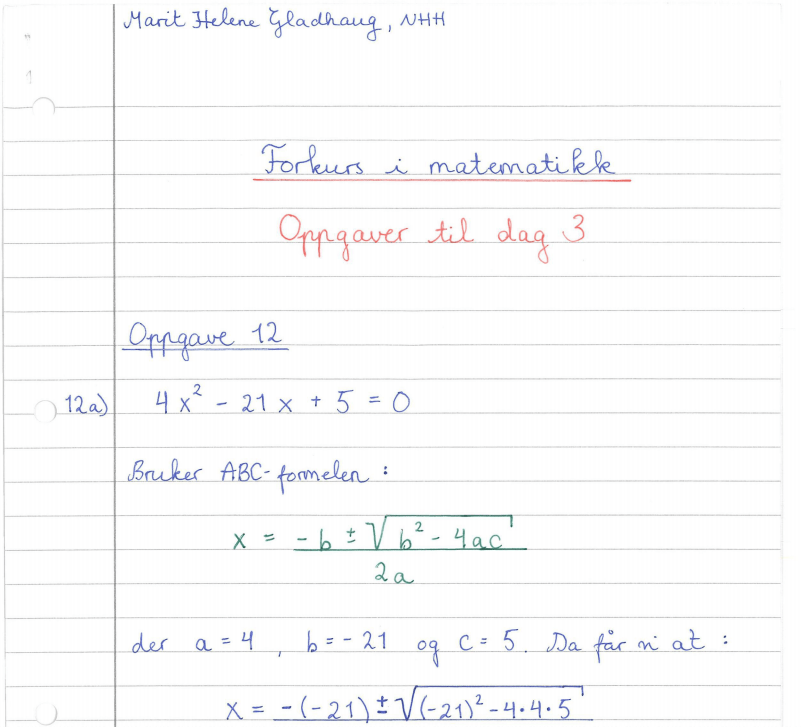 Marit Helene Gladhaug, NHH
Forkurs i matematikk
Oppgaver til dag 3
Oppgave 12
12a) 4x² - 21x + 5 = 0
Bruker ABC-formelen :
x = -b ± √(b² - 4ac)
2a
der a = 4 , b = -21 og c = 5. Da får vi at :
x = -(-21) ± √((-21)² - 4·4·5)